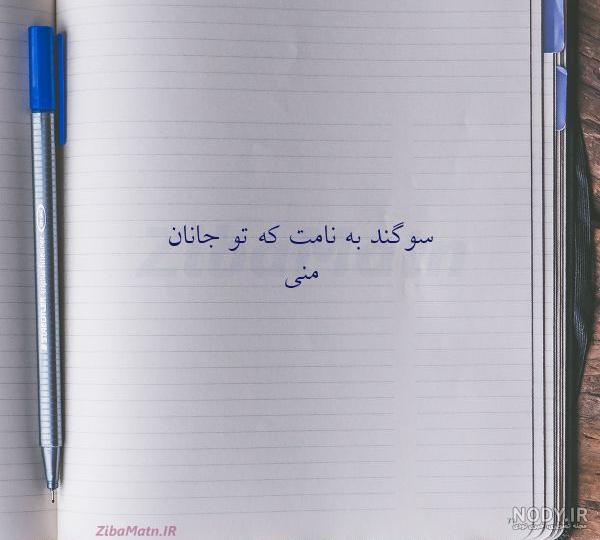 سوگند به نامت که تو جانان
منی
ZibaMatn.IR
NODY.IR